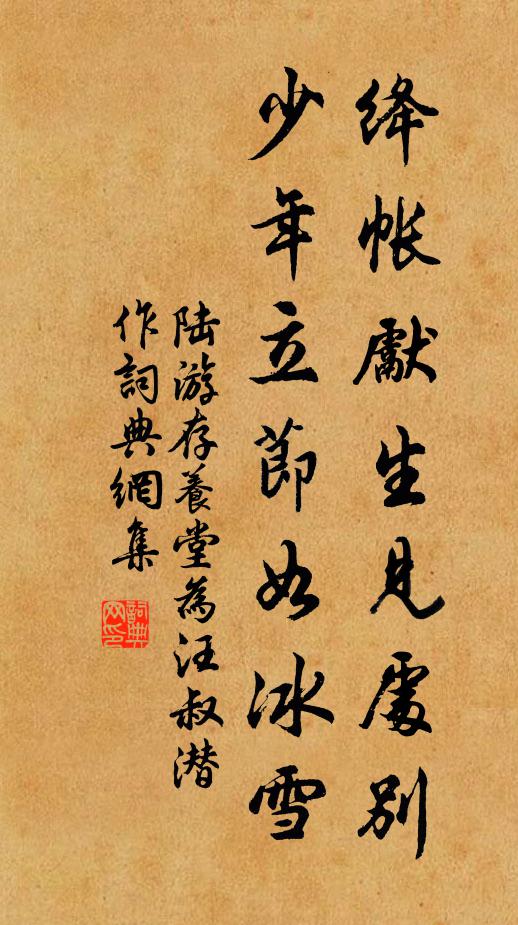 绛帐獻生見處别
少年立節如冰雪
陆游存養堂為汪叔潜
作詞典網集
詞典网印